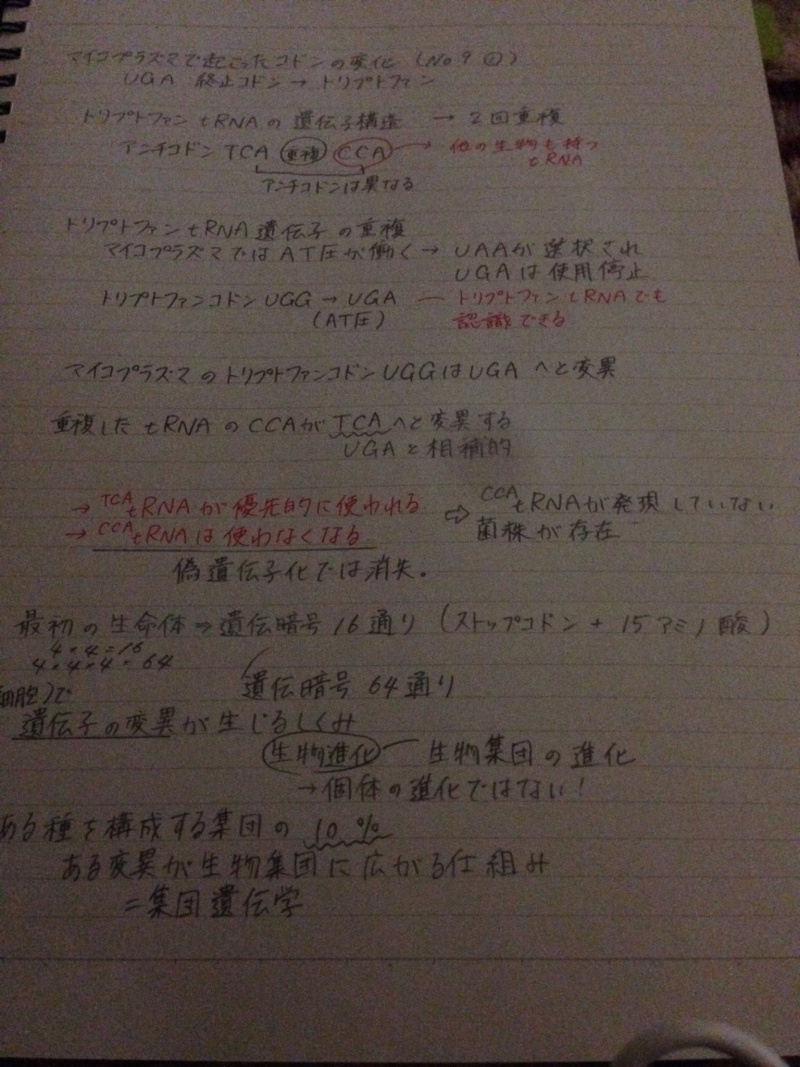 マイコプラズマで起こったコドンの変化 (No 9 ②)
UGA 終止コドン → トリプトファン
トリプトファン tRNAの 遺伝子構造 → 2回重複
アンチコドン TCA 重複 CCA → 他の生物も持つ
tRNA
アンチコドンは異なる
トリプトファン tRNA 遺伝子の重複
マイコプラズマではAT圧が働く → UAAが選択され
UGAは使用停止
トリプトファンコドン UGG → UGA ― トリプトファンtRNAでも
(AT圧) 認識できる
マイコプラズマのトリプトファンコドンUGGはUGAへと変異
重複した tRNA のCCAがTCAへと変異する
UGAと相補的
→ TCA tRNAが優先的に使われる ⇨ CCA tRNAが発現していない
→ CCA tRNAは使わなくなる 菌株が存在
偽遺伝子化では消失。
最初の生命体 ⇒ 遺伝暗号16通り (ストップコドン + 15アミノ酸)
4×4=16
4×4×4=64
遺伝暗号 64通り
細胞)で
遺伝子の変異が生じるしくみ
生物進化 ― 生物集団の進化
→ 個体の進化ではない!
ある種を構成する集団の 10%
ある変異が生物集団に広がる仕組み
=集団遺伝学